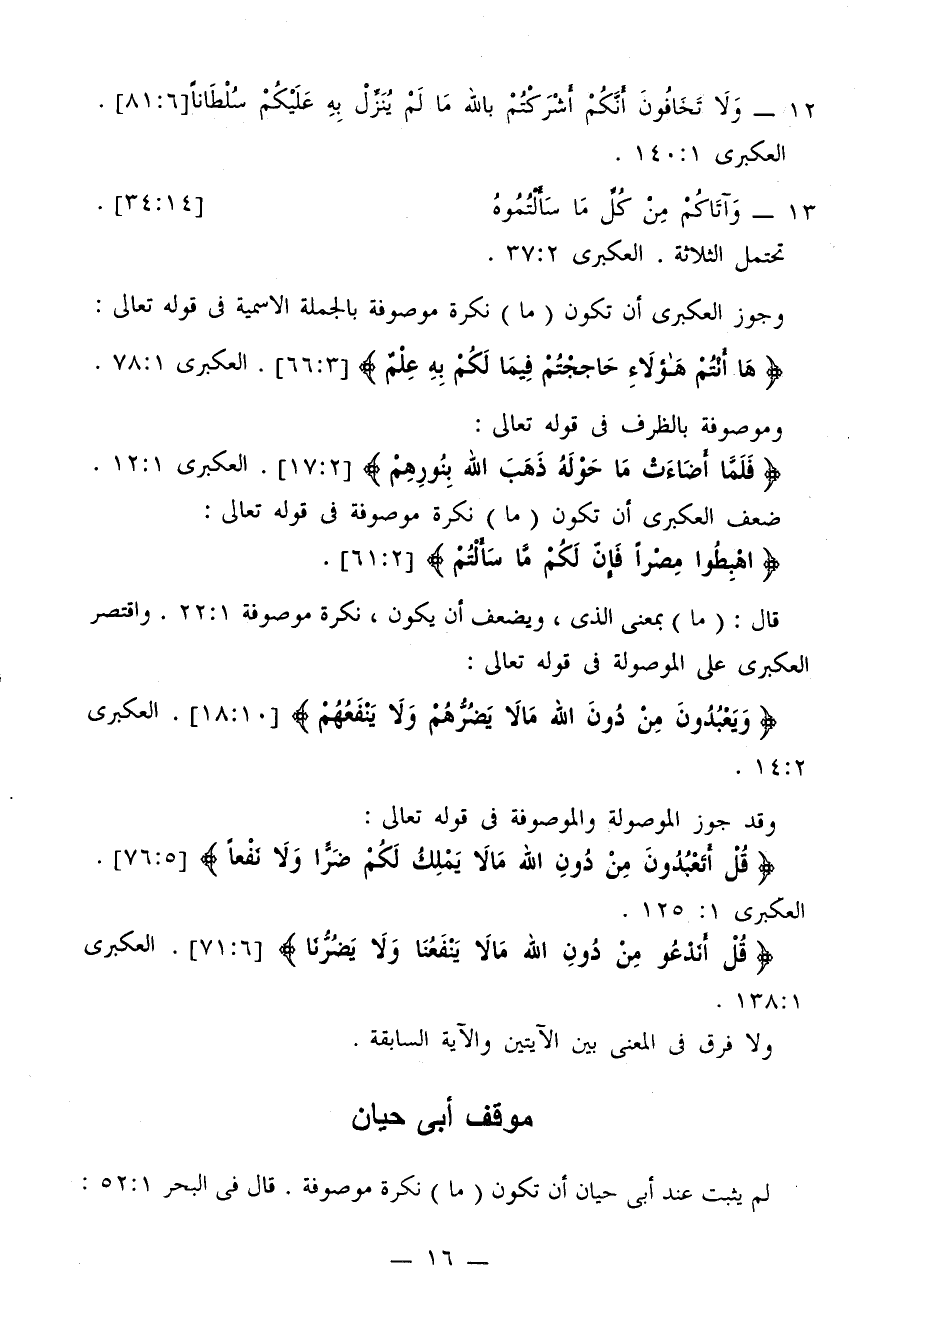 ١٢ ــ وَلَا تَخَافُونَ أَنَّكُمْ أَشْرَكْتُمْ بالله مَا لَمْ يُنَزِّلْ بِهِ عَلَيْكُمْ سُلْطَاناً[٨١:٦] .
العكبرى ١٤٠:١ .
١٣ ــ وَآتَاكُمْ مِنْ كُلِّ مَا سَأَلْتُمُوهُ [٣٤:١٤] .
تحتمل الثلاثة . العكبرى ٣٧:٢ .
وجوز العكبرى أن تكون ( ما ) نكرة موصوفة بالجملة الاسمية فى قوله تعالى :
﴿ هَا أَنْتُمْ هَـٰؤلَاءِ حَاجِجْتُمْ فِيمَا لَكُمْ بِهِ عِلْمٌ ﴾ [٦٦:٣] . العكبرى ٧٨:١ .
وموصوفة بالظرف فى قوله تعالى :
﴿ فَلَمَّا أَضَاءَتْ مَا حَوْلَهُ ذَهَبَ الله بِنُورِهِمْ ﴾ [١٧:٢] . العكبرى ١٢:١ .
ضعف العكبرى أن تكون ( ما ) نكرة موصوفة فى قوله تعالى :
﴿ اهْبِطُوا مِصْراً فَإِنّ لَكُمْ مَّا سَأَلْتُمْ ﴾ [٦١:٢] .
قال : ( ما ) بمعنى الذى ، ويضعف أن يكون ، نكرة موصوفة ٢٢:١ . واقتصر
العكبرى على الموصولة فى قوله تعالى :
﴿ وَيَعْبُدُونَ مِنْ دُونَ الله مَالَا يَضُرُّهُمْ وَلَا يَنْفَعُهُمْ ﴾ [١٨:١٠] . العكبرى
١٤:٢ .
وقد جوز الموصولة والموصوفة فى قوله تعالى :
﴿ قُلْ أَتَعْبُدُونَ مِنْ دُونِ الله مَالَا يَمْلِكُ لَكُمْ ضَرًّا وَلَا نَفْعاً ﴾ [٧٦:٥] .
العكبرى ١: ١٢٥ .
﴿ قُلْ أَنَدْعُو مِنْ دُونِ الله مَالَا يَنْفَعُنَا وَلَا يَضُرُّنَا ﴾ [٧١:٦] . العكبرى
١٣٨:١ .
ولا فرق فى المعنى بين الآيتين والآية السابقة .
موقف أبى حيان
لم يثبت عند أبى حيان أن تكون ( ما ) نكرة موصوفة . قال فى البحر ٥٢:١ :
ــ ١٦ ــ